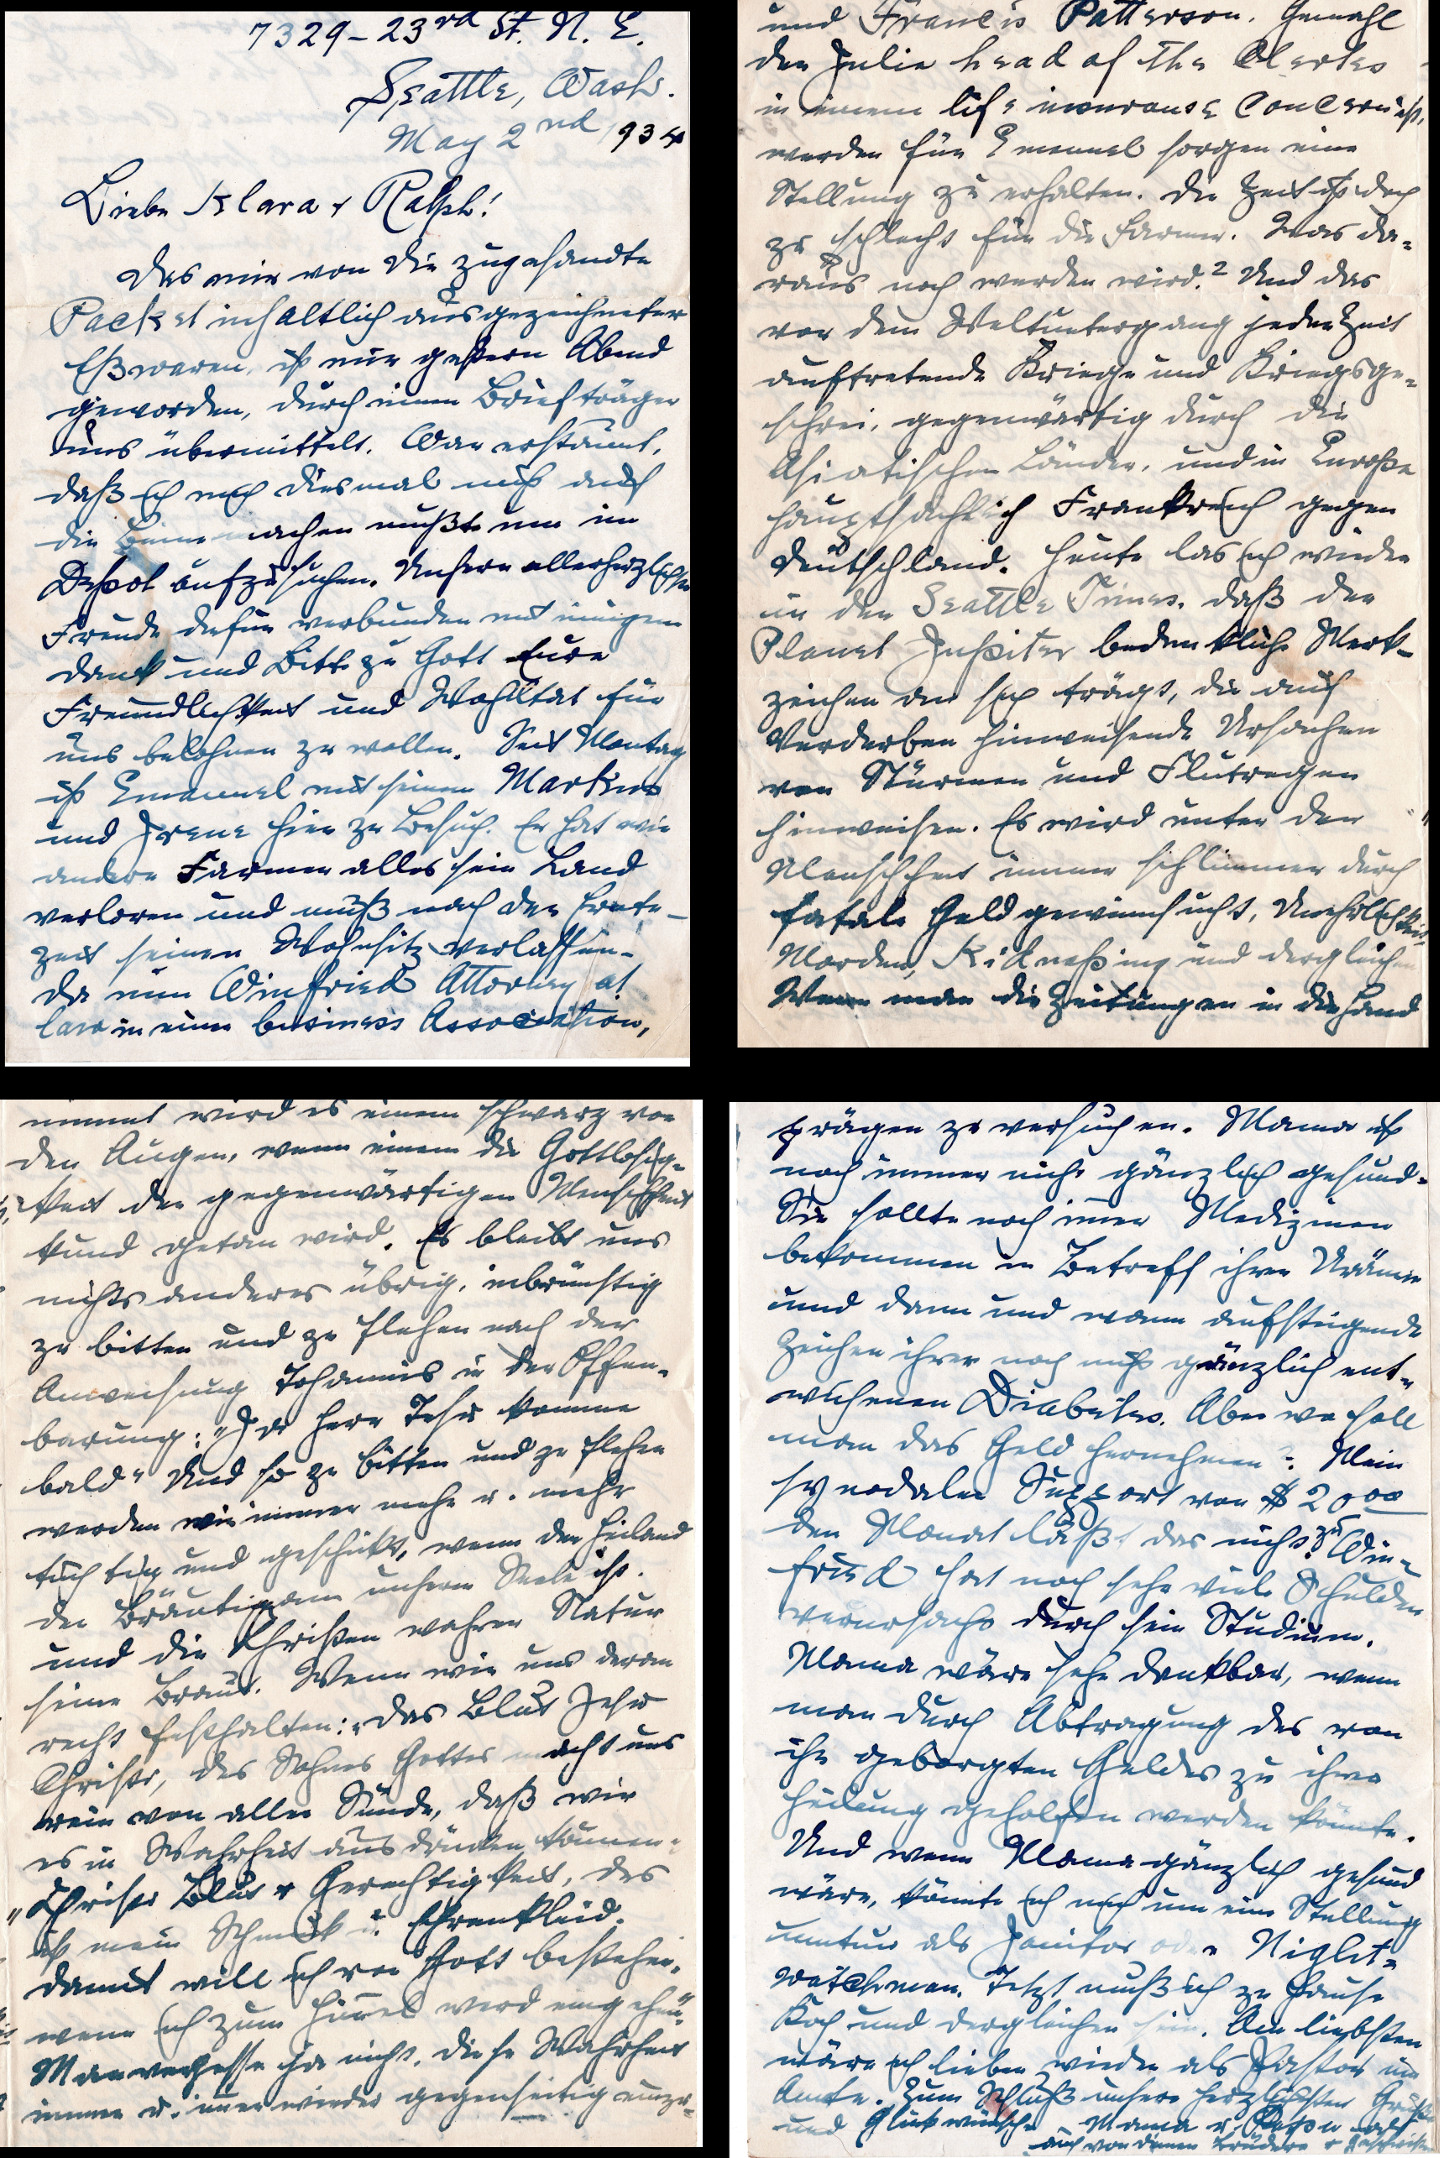 7329 - 23rd St. N. E.
Seattle, Wash.
May 2nd 1934
Liebe Klara & Ralph!
Das mir von Dir zugesandte
Packet inhaltlich ausgezeichneter
Eßwaren, ist mir gestern Abend
geworden, durch einen Briefträger
uns übermittelt. War erstaunt,
daß ich mich diesmal nicht auf
die Beine machen mußte um im
Depot aufzusuchen. Unsere allerherzlichste
Freude dafür verbunden mit innigem
Dank und Bitte zu Gott Eure
Freundlichkeit und Wohltat für
uns belohnen zu wollen. Seit Montag
ist Emanuel mit seinem Markus
und Irene hier zu Besuch. Er hat wie
andere Farmer alles sein Land
verloren und muß nach der Ernte-
zeit seinen Wohnsitz verlassen.
Da nun Winfried Attorney at
law in einer business Association,
und Francis Patterson, Gemahl
der Julie head of the Clerks
in einem life insurance Concern ist,
werden für Emanuel sorgen eine
Stellung zu erhalten. Die Zeit ist doch
zu schlecht für die Farmer. Was da-
raus noch werden wird? Und das
vor dem Weltuntergang jeder Zeit
auftretende Kriege und Kriegsge-
schrei, gegenwärtig durch die
Asiatischen Länder, und in Europa
hauptsächlich Frankreich gegen
Deutschland. Heute las ich wieder
in der Seattle Times, daß der
Planet Jupiter bedenkliche Merk-
zeichen an sich trägt, die auf
Verderben hinweisende Ursachen
von Stürmen und Flutregen
hinweisen. Es wird unter der
Menschheit immer schlimmer durch
fatale Geldgewinnsucht, Unehrlichkeit,
Morden, Kidnaping und dergleichen
Wenn man die Zeitungen in die Hand
nimmt wird es einem schwarz vor
den Augen, wenn einem die Gottlosig-
keit der gegenwärtigen Menschheit
kund getan wird. Es bleibt uns
nichts anderes übrig, inbrünstig
zu bitten und zu flehen nach der
Anweisung Johannis in der Offen-
barung: "Ja Herr Jesu komme
bald" Und so zu bitten und zu flehen
werden wir immer mehr u. mehr
tüchtig und geschickt, wenn der Heiland
der Bräutigam unserer Seele ist.
und die Christen wahrer Natur
seine Braut. Wenn wir uns daran
recht festhalten: "Das Blut Jesu
Christi, des Sohnes Gottes macht uns
rein von aller Sünde, daß wir
es in Wahrheit ausdrücken können:
"Christi Blut & Gerechtigkeit, das
ist mein Schmuck u. Ehrenkleid.
Damit will ich vor Gott bestehen,
wenn ich zum Himel werd eingehen"
Man vergesse ja nicht, diese Wahrheit
immer u. immer wieder gegenseitig einzu-
prägen zu versuchen. Mama ist
noch immer nicht gänzlich gesund.
Sie sollte noch imer Medizinen
bekommen in Betreff ihrer Urämie
und dann und wann aufsteigende
Zeichen ihrer noch nicht gänzlich ent-
wichenen Diabetes. Aber wo soll
man das Geld hernehmen? Mein
synodaler Support von $ 20 00
den Monat läßt das nicht zu. Win-
fried hat noch sehr viele Schulden
verursacht durch sein Studium.
Mama wäre sehr dankbar, wenn
man durch Abtragung des von
ihr geborgten Geldes zu ihre
Heilung geholfen werden könnte.
Und wenn Mama gänzlich gesund
wäre, könnte ich mich um eine Stellung
umtun als Janitor oder Night-
watchman. Jetzt muß ich zu Hause
Koch und dergleichen sein. Am liebsten
wäre ich lieber wieder als Pastor im
Amte. Zum Schluß unsere herzlichsten Grüße
und Glückwünsche Mama u. Papa
auch von deinen Brüdern & Geschwistern